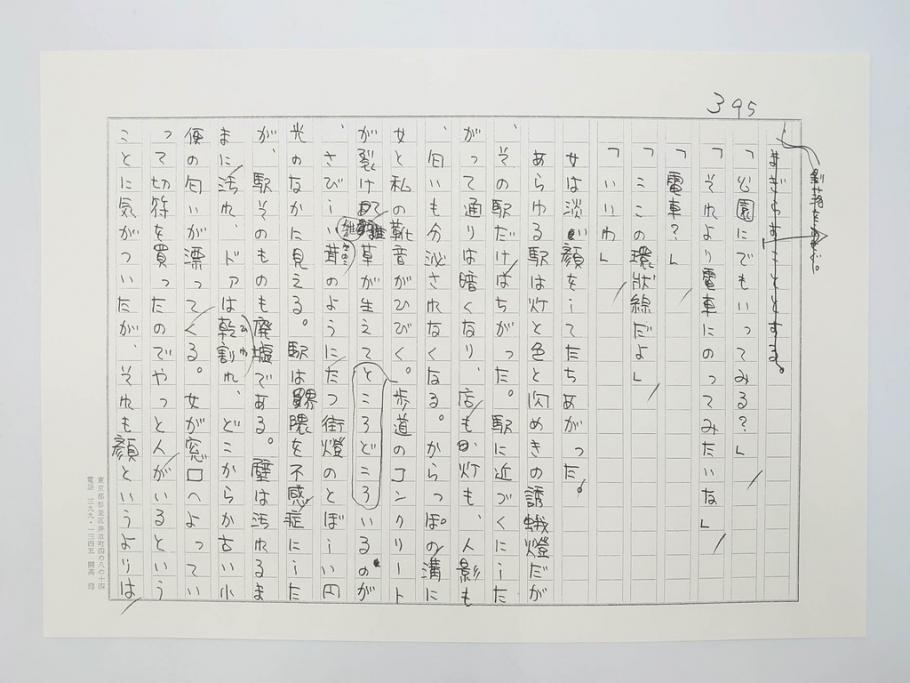 395
まぎらすこととする。
「公園にでもいってみる？」
「それより電車にのってみたいな」
「電車？」
「ここの環状線だよ」
「いいわ」
女は淡い顔をしてたちあがった。
あらゆる駅は灯と色と閃めきの誘蛾燈だが
、その駅だけはちがった。駅に近づくにした
がって通りは暗くなり、店も灯も、人影も
、匂いも分泌されなくなる。からっぽの溝に
女と私の靴音がひびく。歩道のコンクリート
が裂けて雑草が生えてところどころいるのが
、さびしい茸のようにたつ街燈のとぼしい円
光のなかに見える。駅は界隈を不感症にした
が、駅そのものも廃墟である。壁は汚れるま
まに汚れ、ドアは乾割れ、どこからか古い小
便の匂いが漂ってくる。女が窓口へよってい
って切符を買ったのでやっと人がいるという
ことに気がついたが、それも顔というよりは
東京都杉並区井草町四の八の十四
電話 三九九・一三四五 開高 健